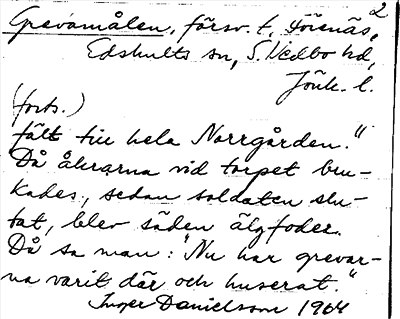 2
Grevamålen, försv. t. Hörenäs,
Edshults sn, S. Vedbo hd,
Jönk. l.
(forts.)
fält till hela Norrgården."
Då åkrarna vid torpet bru-
kades, sedan soldaten slu-
tat, blev säden älgfoder.
Då sa man: "Nu har grevar-
na varit där och huserat."
Inger Danielsson 1964